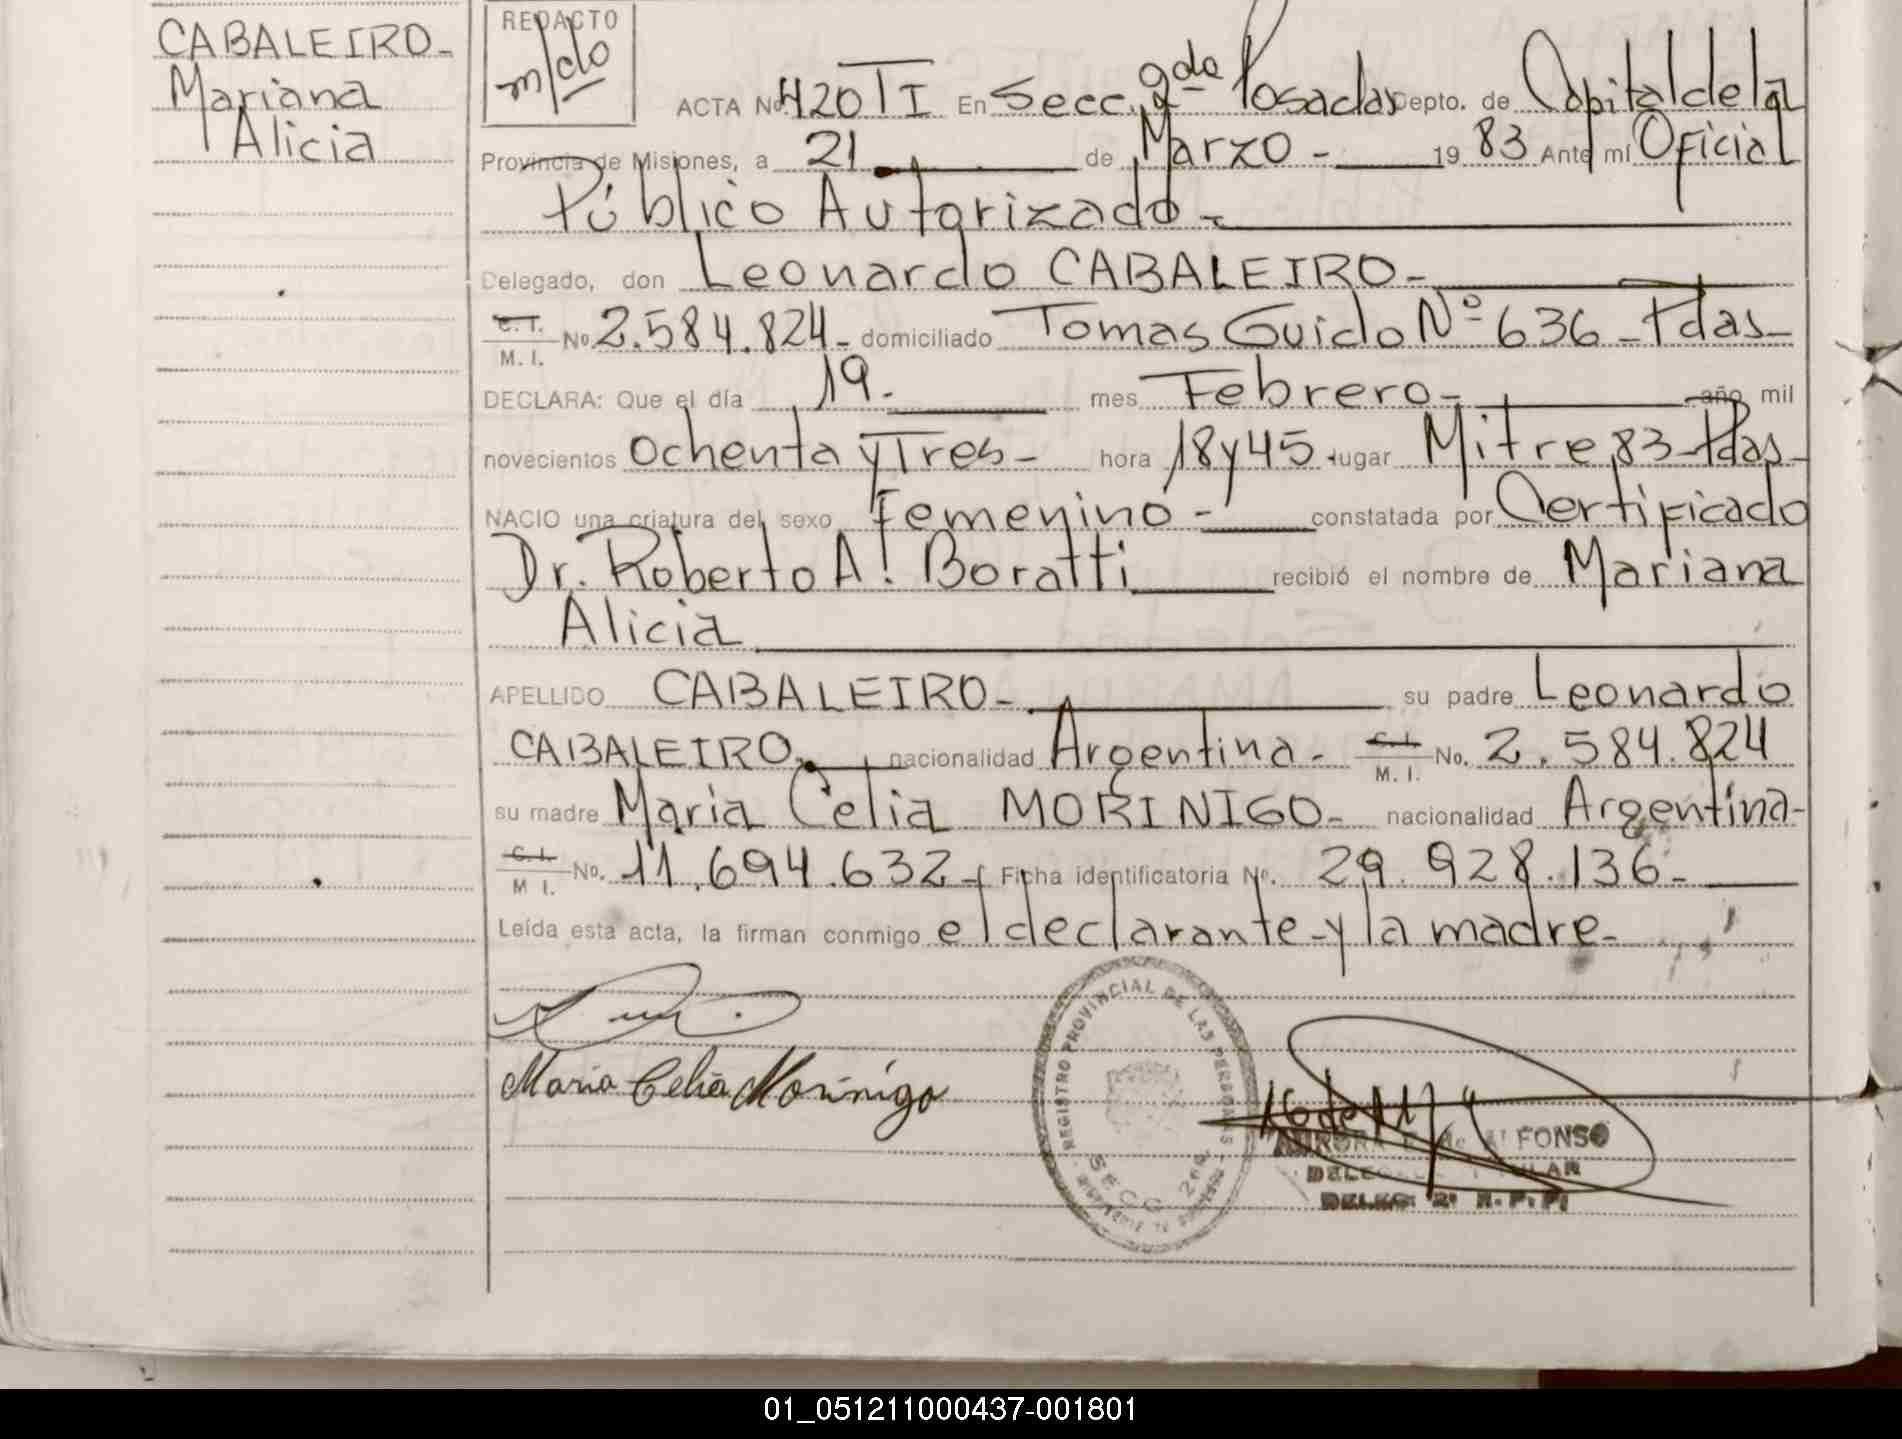 CABALEIRO-
Mariana
Alicia
REDACTO
m/do
ACTA No. 420 TI En Secc. 2da Posadas Depto. de Capital de la
Provincia de Misiones, a 21 de Marzo - 19 83 Ante mí Oficial
Público Autorizado-
Delegado, don Leonardo CABALEIRO-
C.I. / M. I. No. 2.584.824- domiciliado Tomas Guido Nº 636 - Pdas-
DECLARA: Que el día 19- mes Febrero- año mil
novecientos ochenta y Tres- hora 18 y 45. lugar Mitre 83-Pdas-
NACIO una criatura del sexo Femenino- constatada por Certificado
Dr. Roberto A. Boratti recibió el nombre de Mariana
Alicia
APELLIDO CABALEIRO- su padre Leonardo
CABALEIRO. nacionalidad Argentina- C.I. / M. I. No. 2.584.824
su madre Maria Celia MORINIGO- nacionalidad Argentina-
C.I. / M I. No. 11.694.632- Ficha identificatoria Nº. 29.928.136-
Leída esta acta, la firman conmigo el declarante-y la madre-
Maria Celia Morinigo
REGISTRO PROVINCIAL DE LAS PERSONAS
SECC. 2da
AURORA de ALFONSO
DELEGADA TITULAR
DELEG. 2ª R.P.P.
01_051211000437-001801